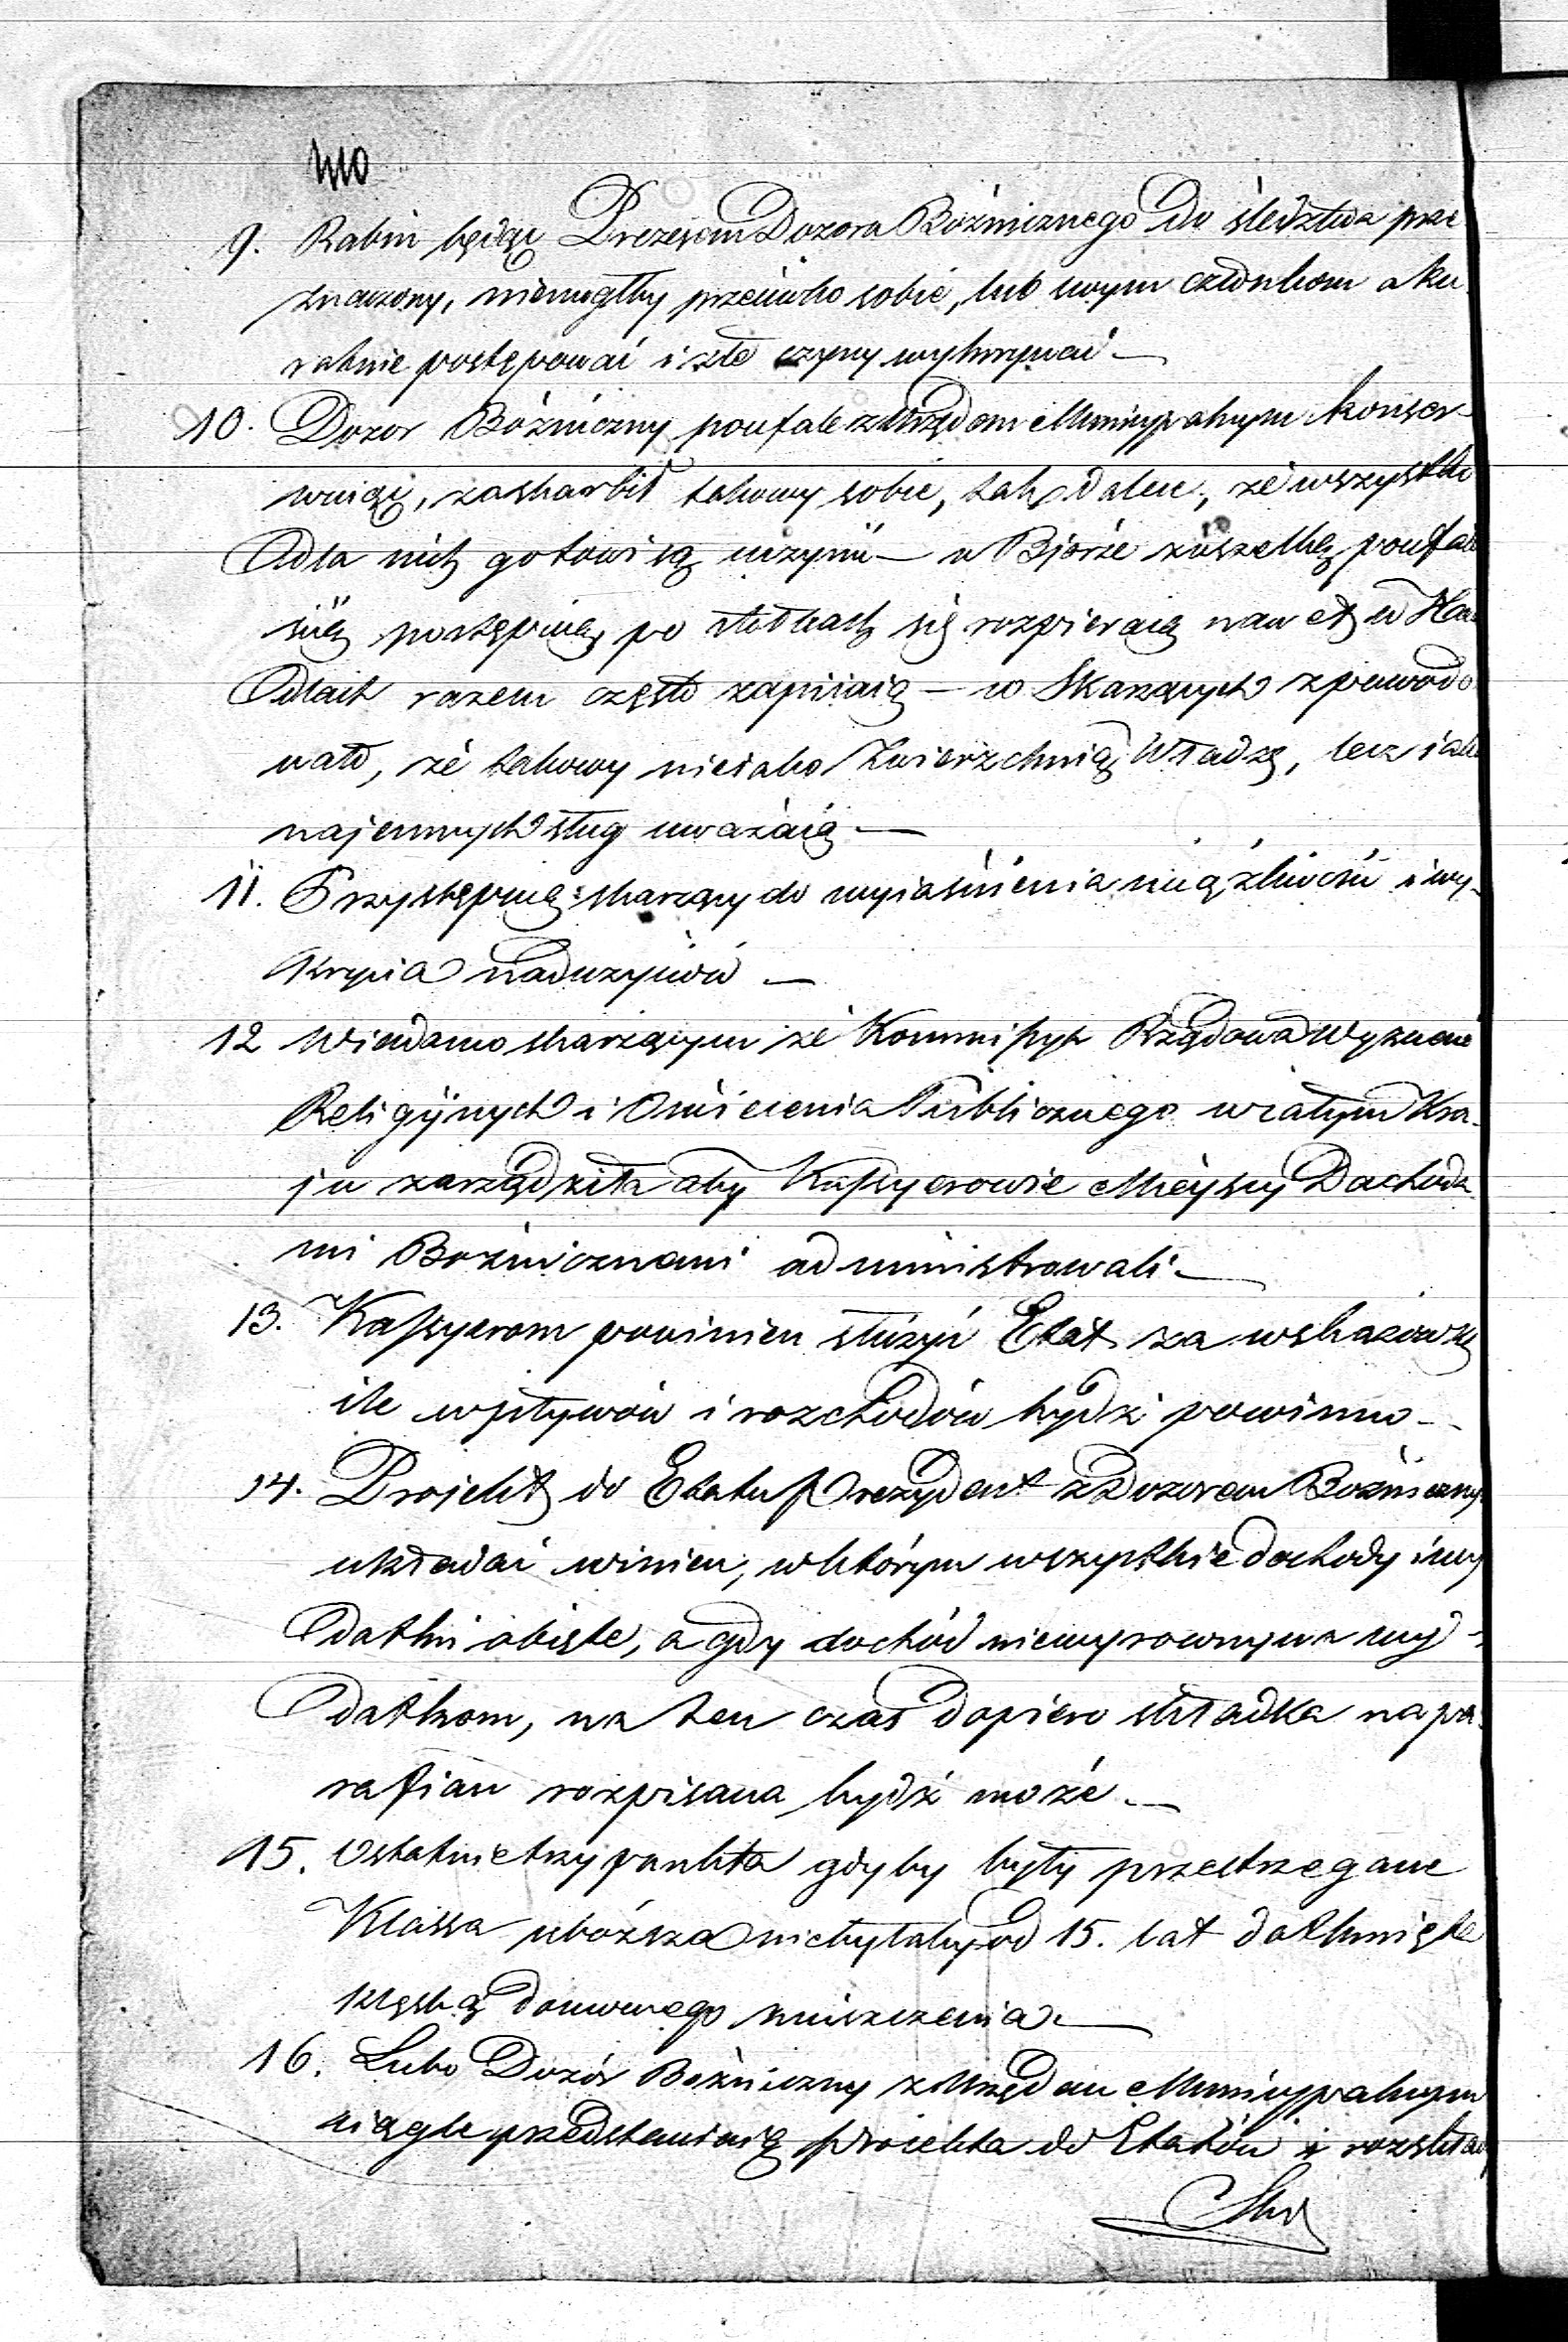 410
9. Rabin będąc Prezesem Dozoru Bóżnicznego do śledztwa prze
znaczony, niemógłby przeciwko sobie, lub swym członkom aku
ratnie postępować i złe czyny wykrywać —
10. Dozor Bóżniczny poufale z Urzędem Municypalnym konser-
wuiąc, zaskarbił takowy sobie, tak dalece, że wszystko
dla nich gotowi są uczynić — w Biórze z wszelką poufało
ścią postępuią, po stołkach się rozpieraią nawet w Han
dlach razem często zapiiaią — co Skarzących spowodo
wało, że takowy nie iako Zwierzchnią Władzę, lecz iako
najemnych sług uważaią —
11. Przystępuią skarzący do wyiaśnienia uciążliwości i wy-
krycia nadużyciów —
12 Wiadomo skarzącym że Kommissya Rządowa Wyznań
Religijnych i Oświecenia Publicznego w całym Kra-
ju zarządziła aby Kassyerowie Mieyscy Dochoda
mi Bożnicznemi administrowali —
13. Kassyerom powinien służyć Etat za wskazówkę
ile wpływów i rozchodów bydź powinno —
14. Projekt do Etatu Prezydent z Dozorem Bóżniczny
układać winien, w którym wszystkie dochody i wy
datki obięte, a gdy dochód niewyrownywa wy-
datkom, na ten czas dopiero składka na pa-
rafian rozpisana bydź może —
15. Ostatnie trzy punkta gdyby były przestrzegane
Klassa uboższa niebyłaby od 15. lat dotknięta
klęską domowego zniszczenia —
16. Lubo Dozór Bóżniczny z Urzędem Municypalnym
ciągle przedstawiaią projekta do Etatów i rozkład